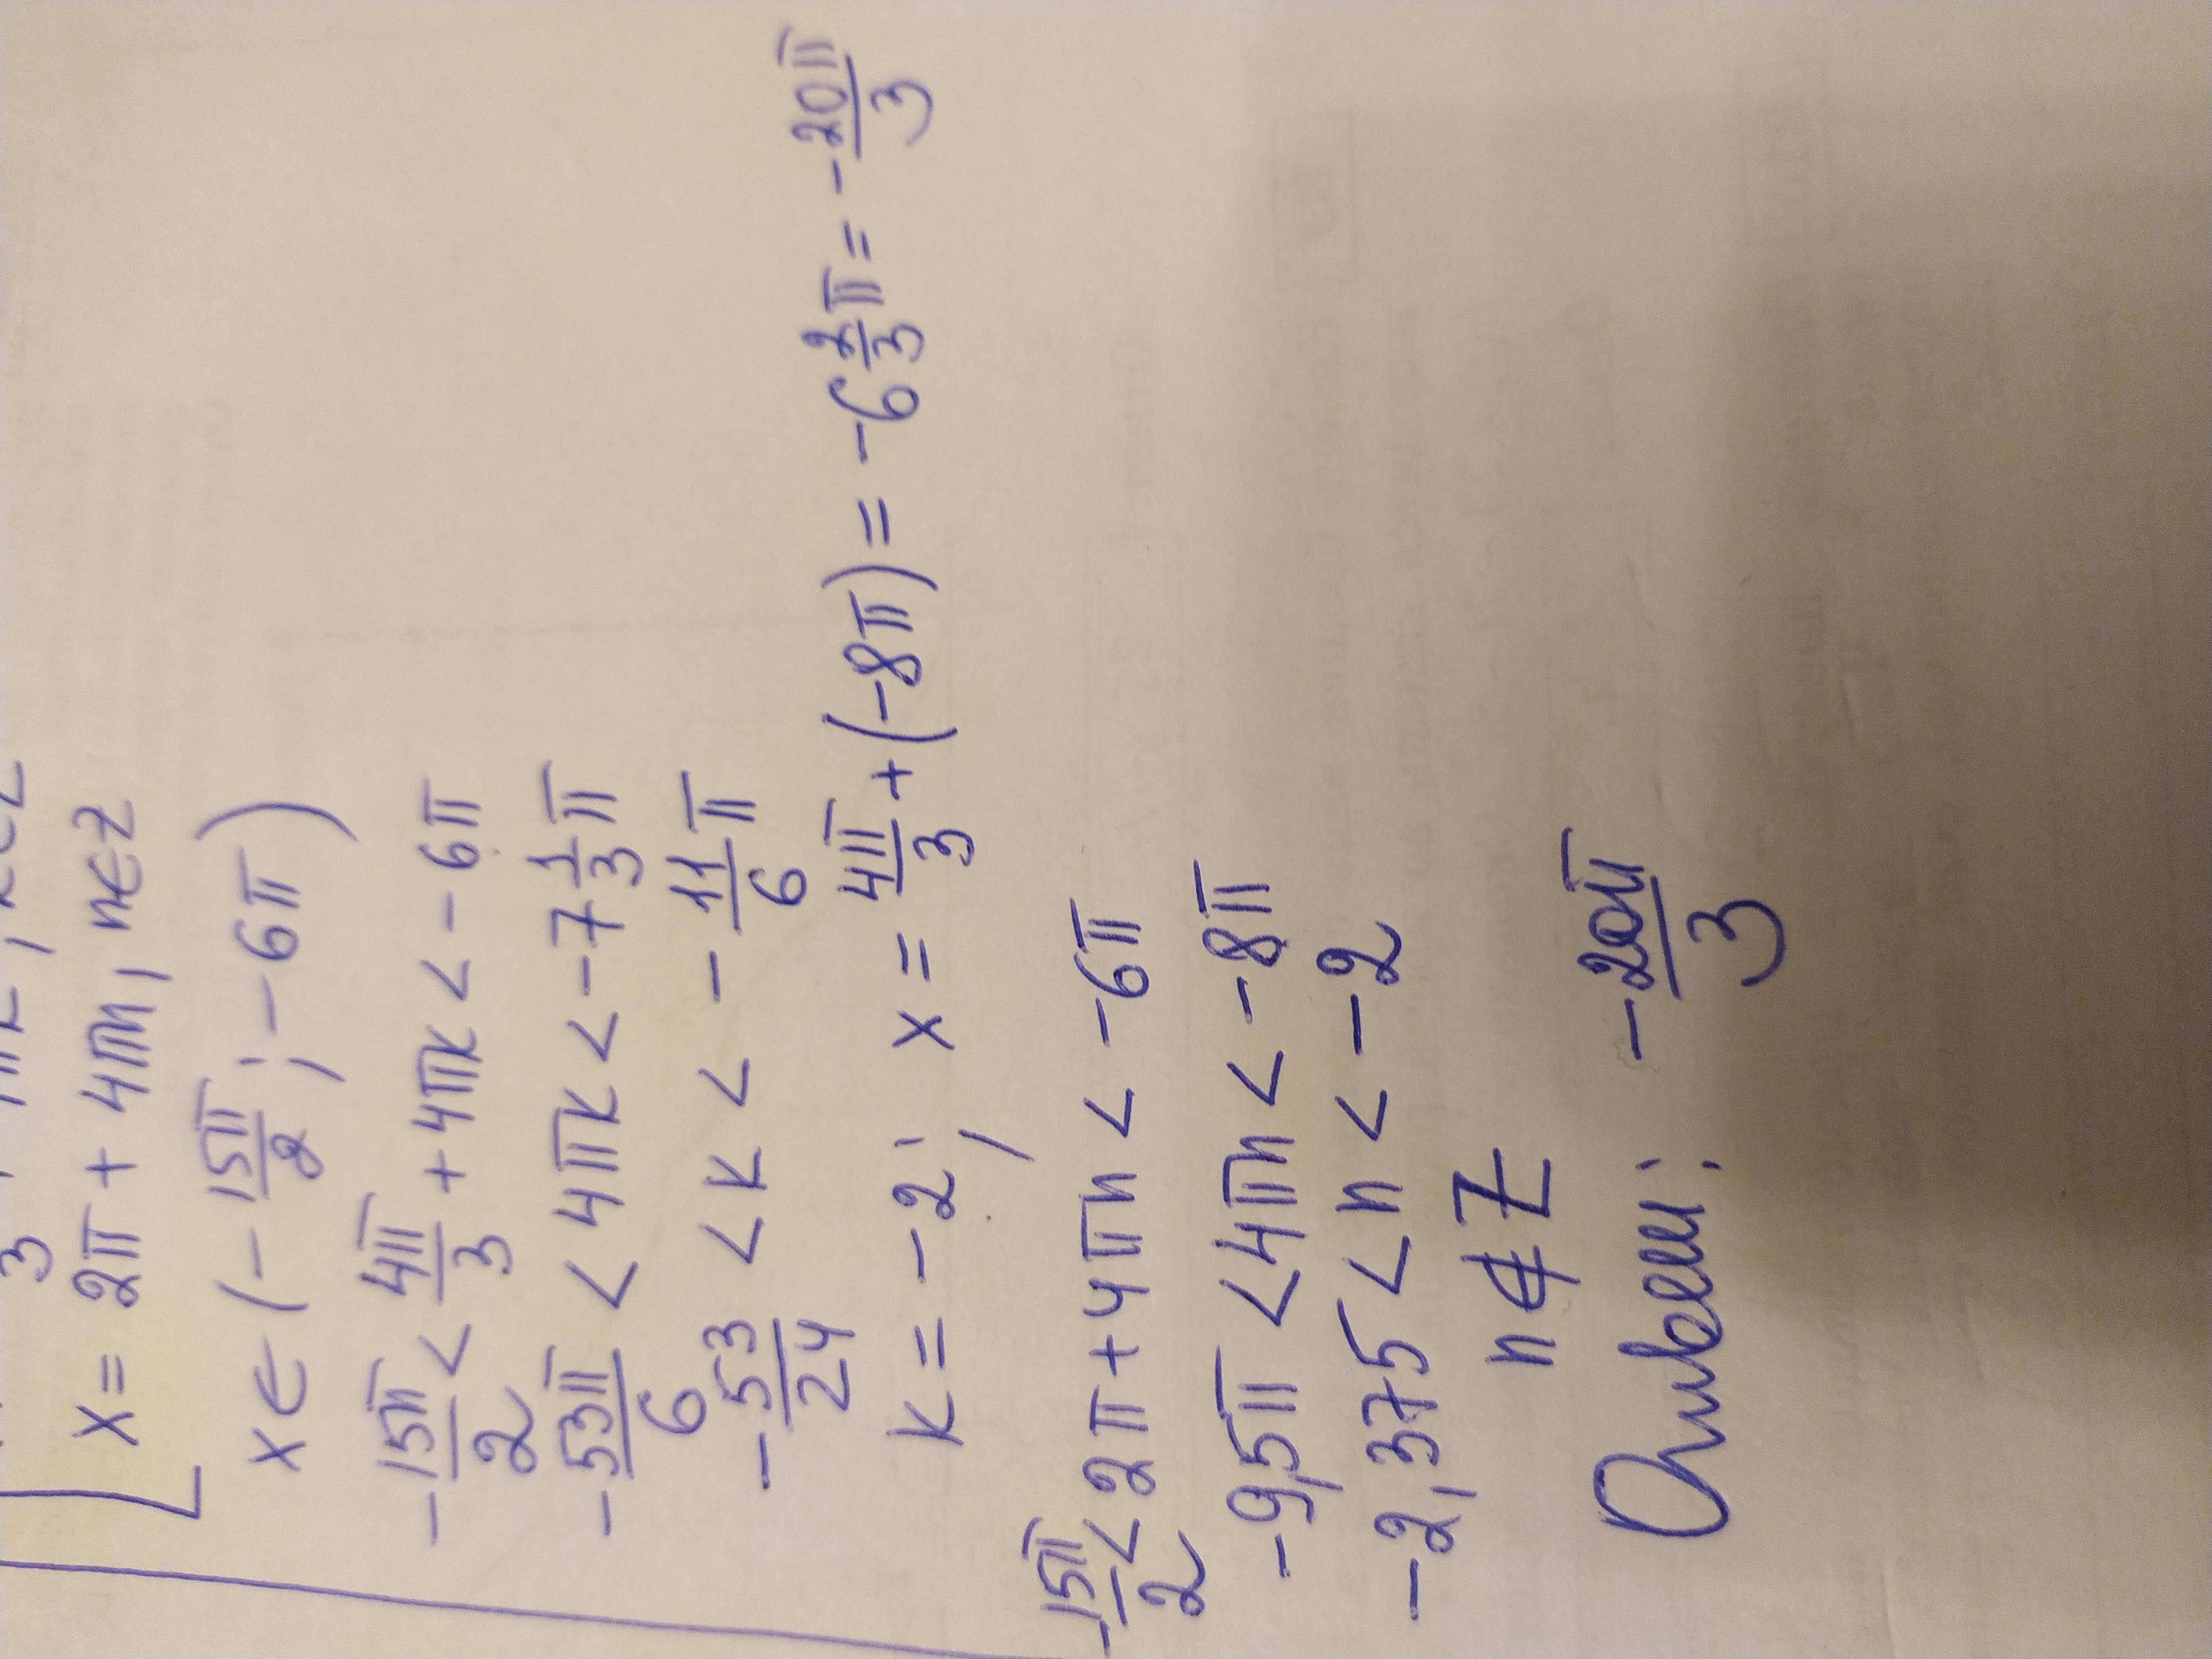 x = 2π + 4πn, n∈Z
x ∈ (-15π/2; -6π)
-15π/2 < 4π/3 + 4πk < -6π
-53π/6 < 4πk < -7 1/3 π
-53/24 < k < -11/6 π
k = -2; x = 4π/3 + (-8π) = -6 2/3 π = -20π/3
-15π/2 < 2π + 4πn < -6π
-9,5π < 4πn < -8π
-2,375 < n < -2
n ∉ Z
Ответ: -20π/3